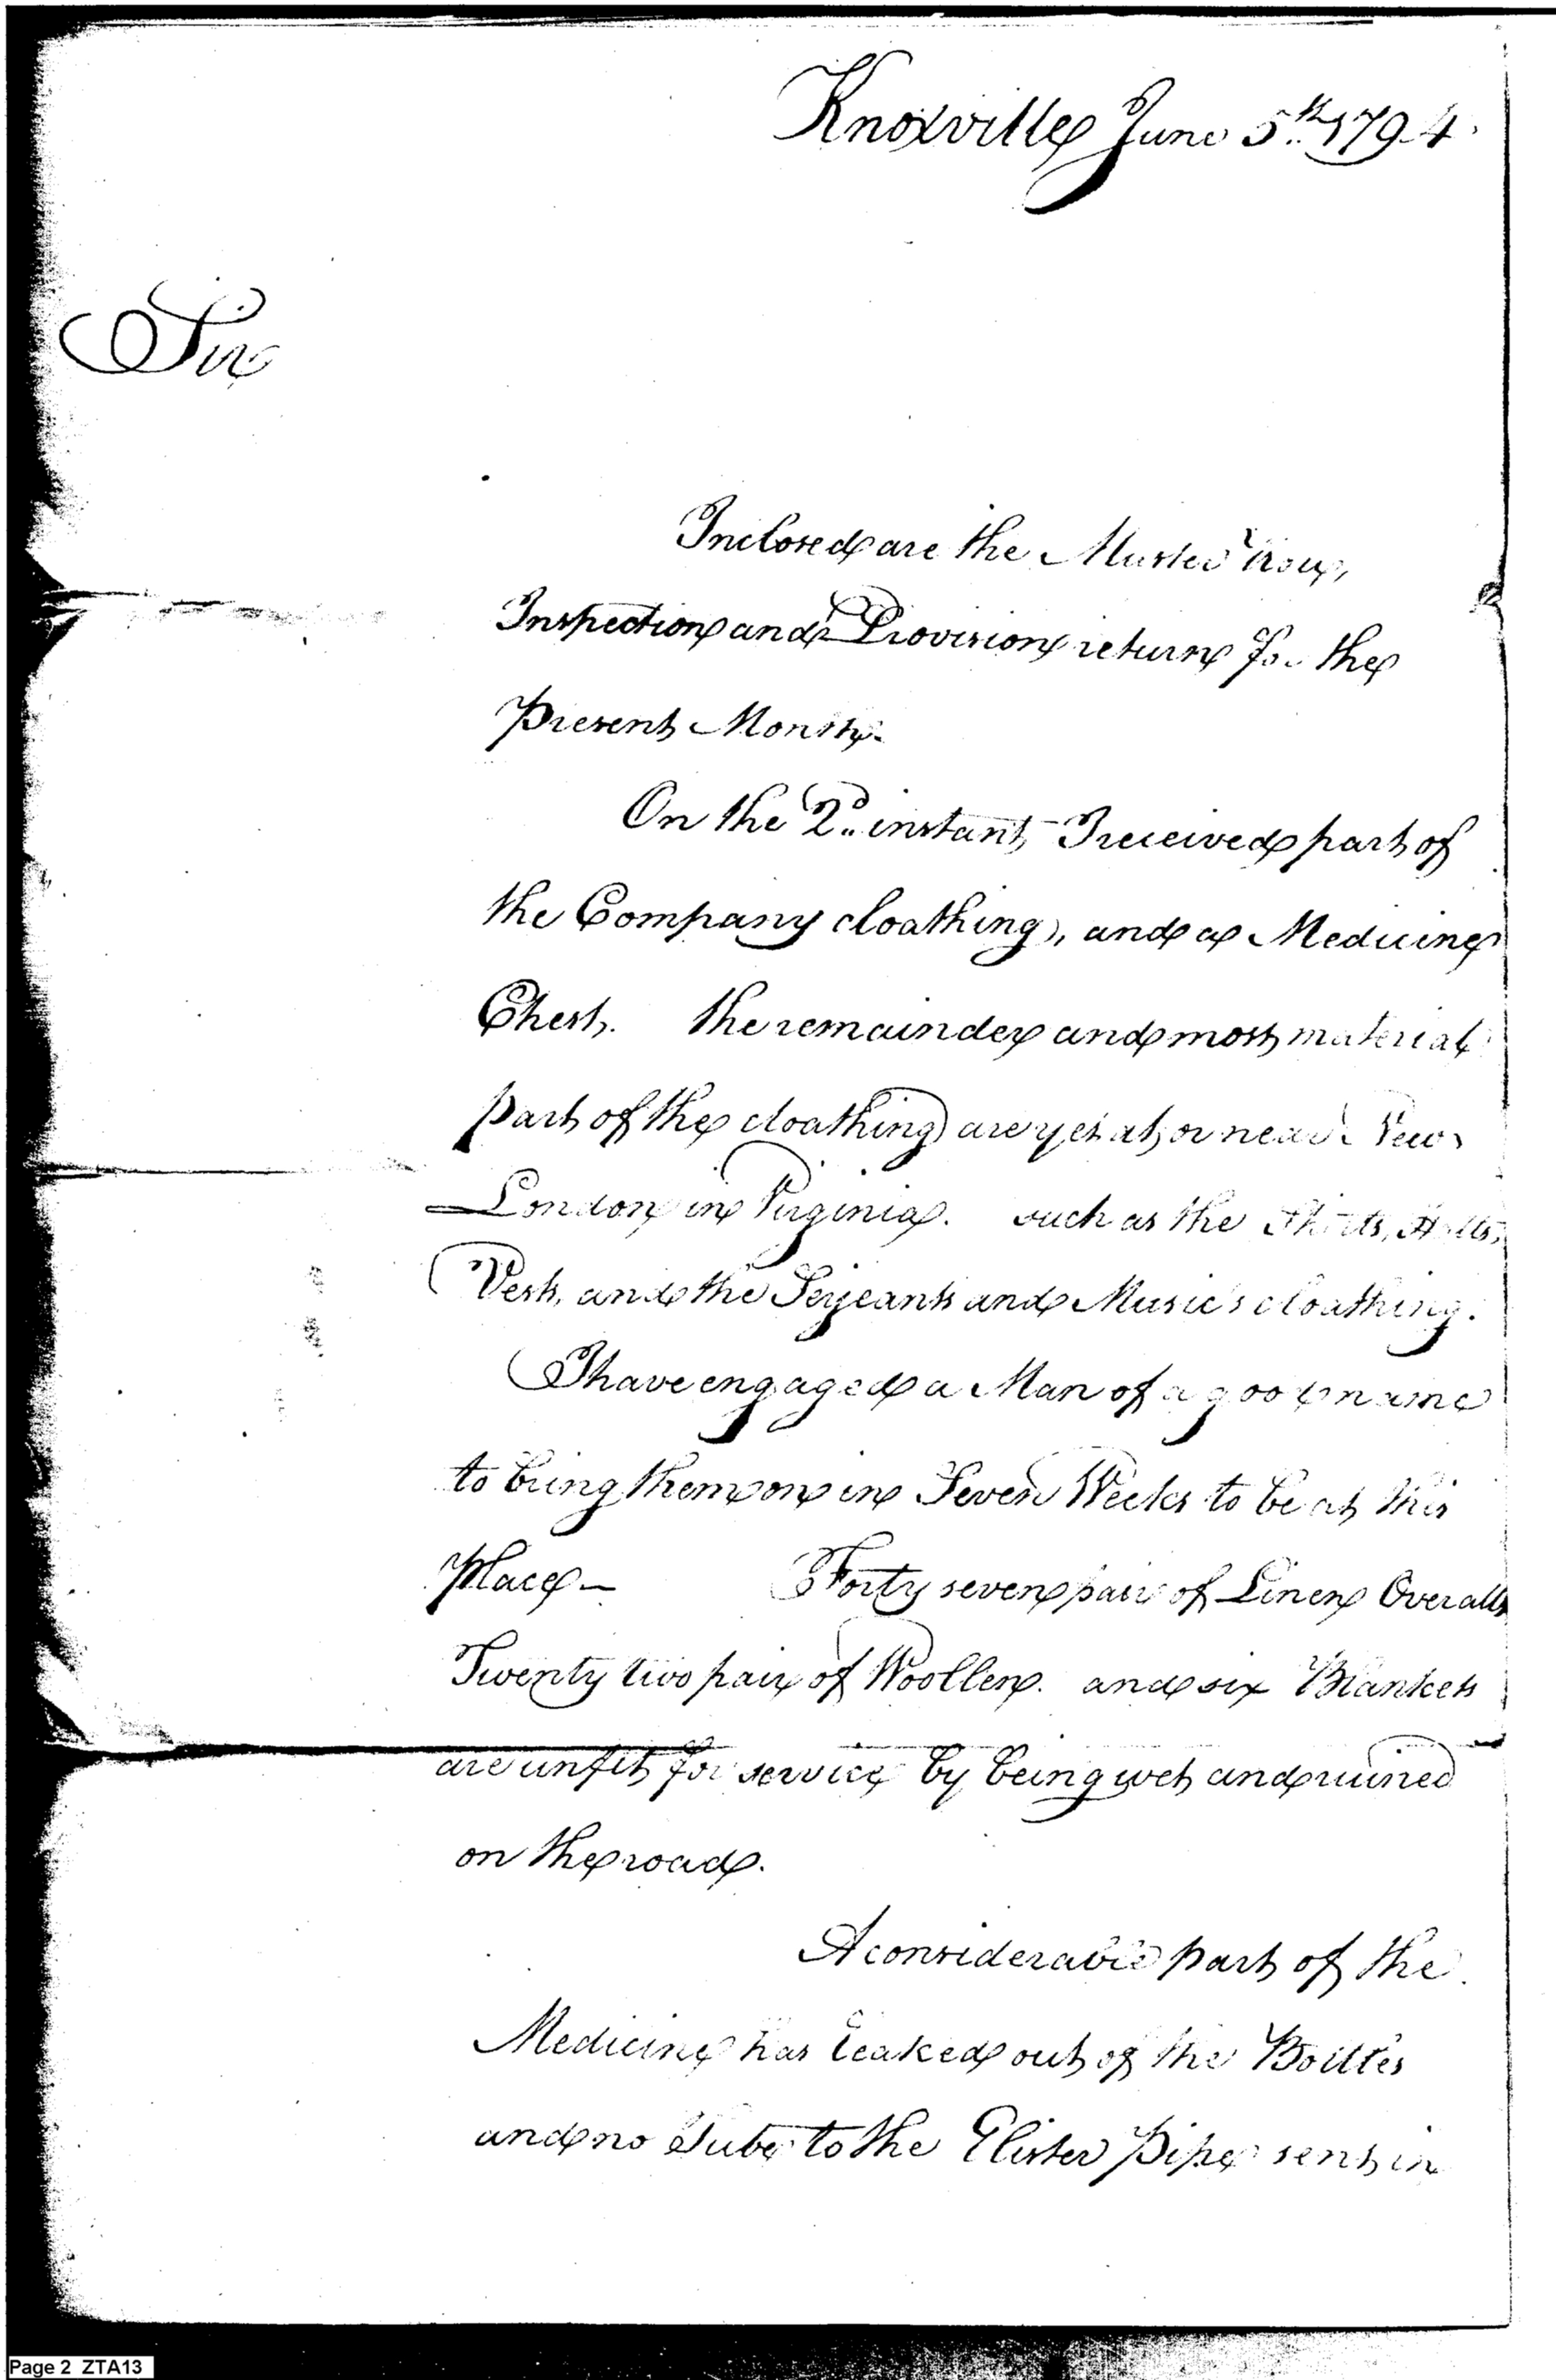 Knoxville June 5th 1794.
Sir
Inclosed are the Muster Troop,
Inspection and Provision return for the
Present Month.
On the 2d instant, I received part of
the Company cloathing, and a Medicine
Chest. the remainder and most material
part of the cloathing are yet at or near New
London in Virginia. such as the Shirts, Hatts,
Vests, and the Serjeants and Music's cloathing.
I have engaged a Man of a good name
to bring them on in Seven Weeks to be at this
Place—  Forty seven pair of Linen Overalls
Twenty two pair of Woollen. and six Blankets
are unfit for service by being wet and ruined
on the road.
A considerable part of the
Medicine has leaked out of the Bottles
and no Tube to the Glister Pipe sent in
Page 2 ZTA13